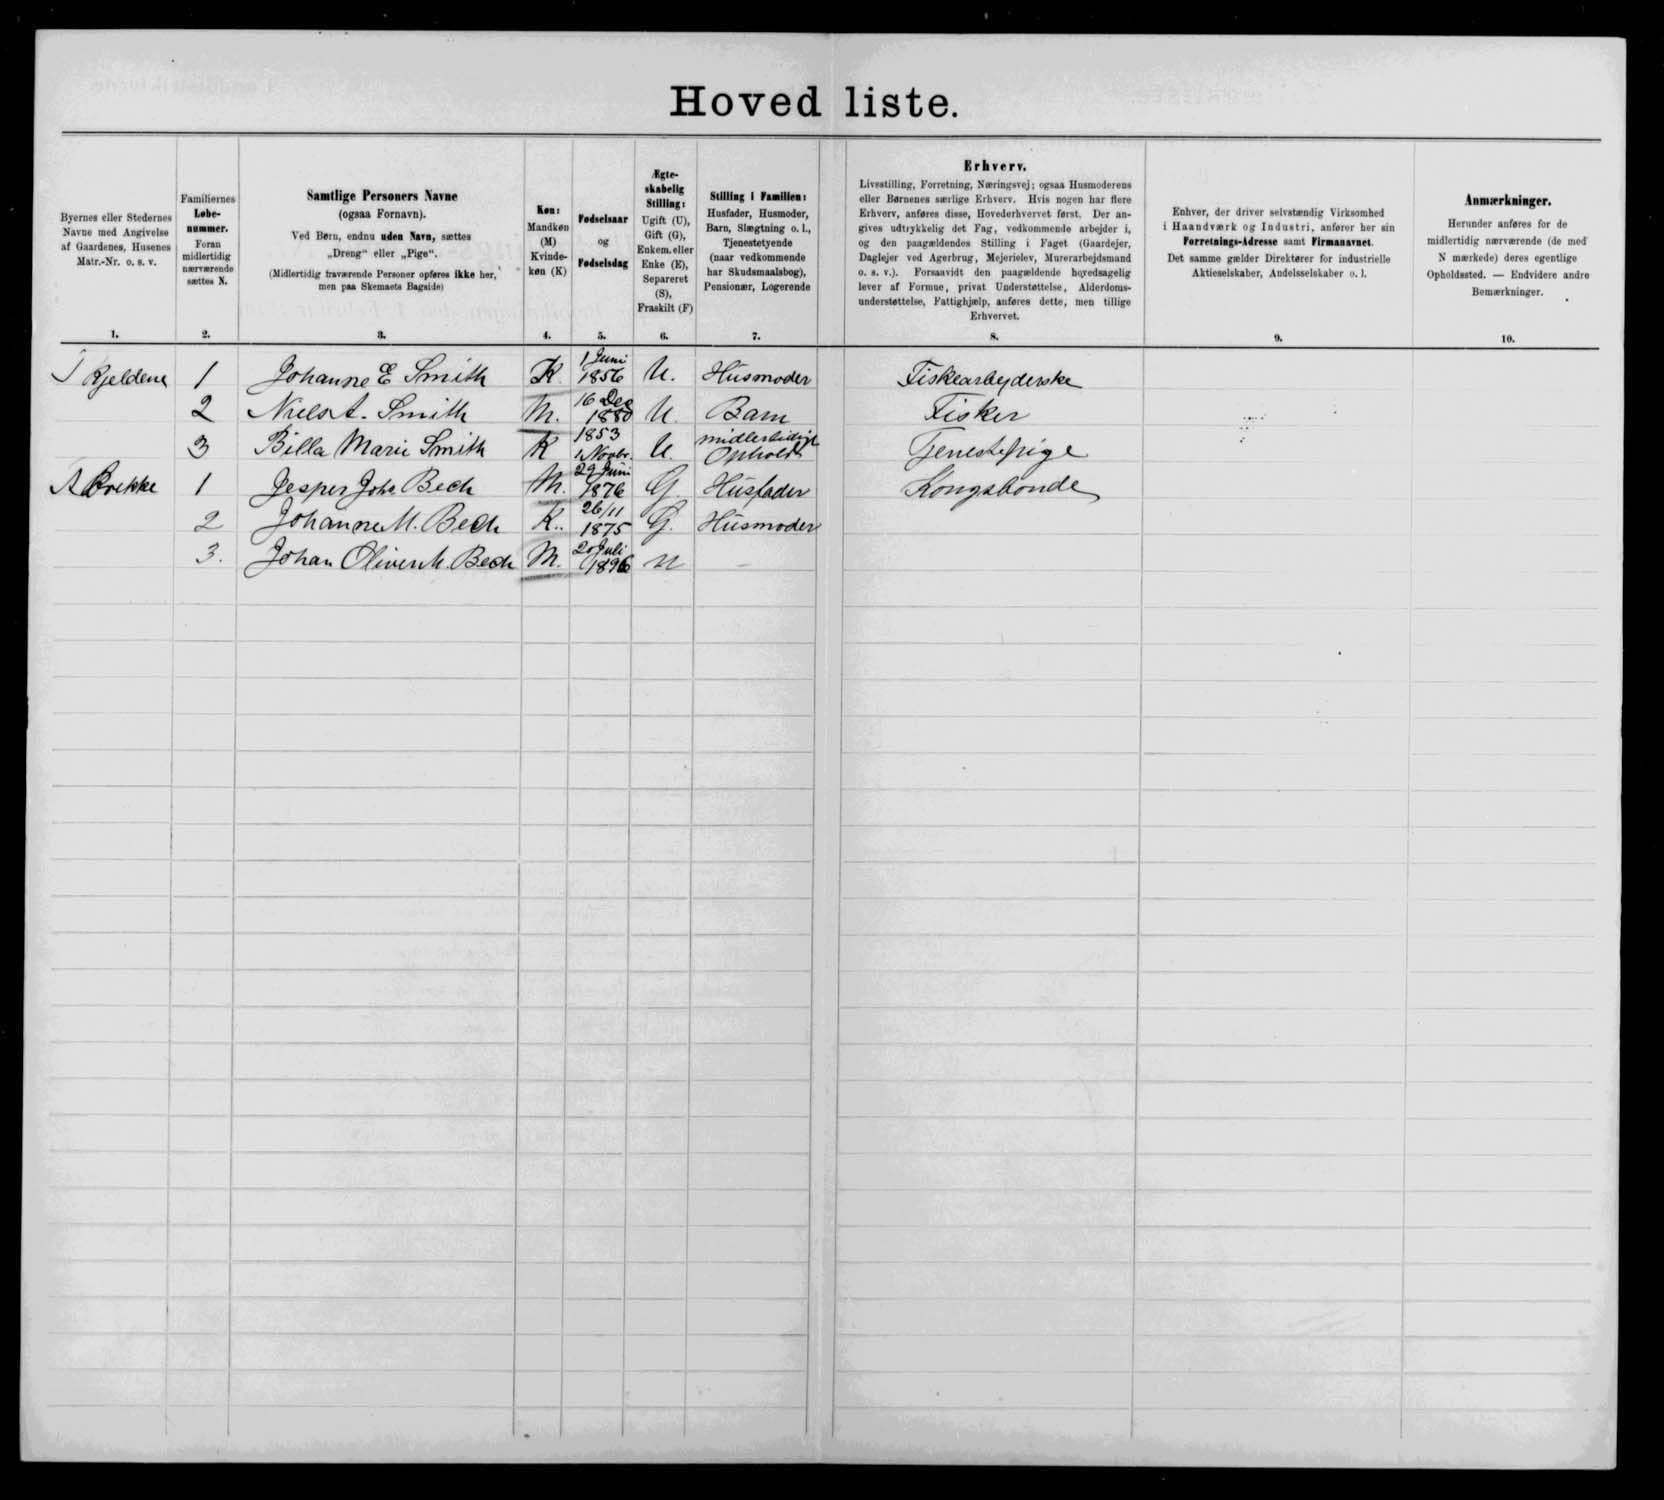 Hovedliste.
Byernes eller Stedernes
Navne med Angivelse
af Gaardenes, Husenes
Matr.-Nr. o. s. v.
1.
Familiernes
Løbe-
nummer.
Foran
midlertidig
nærværende
sættes N.
2.
Samtlige Personers Navne
(ogsaa Fornavn).
Ved Børn, endnu uden Navn, sættes
„Dreng“ eller „Pige“.
(Midlertidig fraværende Personer opføres ikke her,
men paa Skemaets Bagside)
3.
Køn:
Mandkøn
(M)
Kvinde-
køn (K)
4.
Fødselsaar
og
Fødselsdag
5.
Ægte-
skabelig
Stilling:
Ugift (U),
Gift (G),
Enkem. eller
Enke (E),
Separeret
(S),
Fraskilt (F)
6.
Stilling i Familien:
Husfader, Husmoder,
Barn, Slægtning o. l.,
Tjenestetyende
(naar vedkommende
har Skudsmaalsbog),
Pensionær, Logerende
7.
Erhverv.
Livsstilling, Forretning, Næringsvej; ogsaa Husmoderens
eller Børnenes særlige Erhverv. Hvis nogen har flere
Erhverv, anføres disse, Hovederhvervet først. Der an-
gives udtrykkelig det Fag, vedkommende arbejder i,
og den paagældendes Stilling i Faget (Gaardejer,
Daglejer ved Agerbrug, Mejerielev, Murerarbejdsmand
o. s. v.). Forsaavidt den paagældende hovedsagelig
lever af Formue, privat Understøttelse, Alderdoms-
understøttelse, Fattighjælp, anføres dette, men tillige
Erhvervet.
8.
Enhver, der driver selvstændig Virksomhed
i Haandværk og Industri, anfører her sin
Forretnings-Adresse samt Firmanavnet.
Det samme gælder Direktører for industrielle
Aktieselskaber, Andelsselskaber o. l.
9.
Anmærkninger.
Herunder anføres for de
midlertidig nærværende (de med
N mærkede) deres egentlige
Opholdssted. — Endvidere andre
Bemærkninger.
10.
I Kjeldene 1 Johanne E Smith K. 1 Juni 1856 U. Husmoder Fiskearbejderske
2 Niels A. Smith M. 16 Dec 1880 U Barn Fisker
3 Billa Marie Smith K 1853 1 Novbr. U. midlertidigt Ophold Tjenestepige
A Brekke 1 Jesper Johs Bech M. 29 Juni 1876 G. Husfader Kongsbonde
2 Johanne M. Bech K.. 26/11 1875 G. Husmoder
3. Johan Oliver M. Bech M. 20 Juli 1896 U –